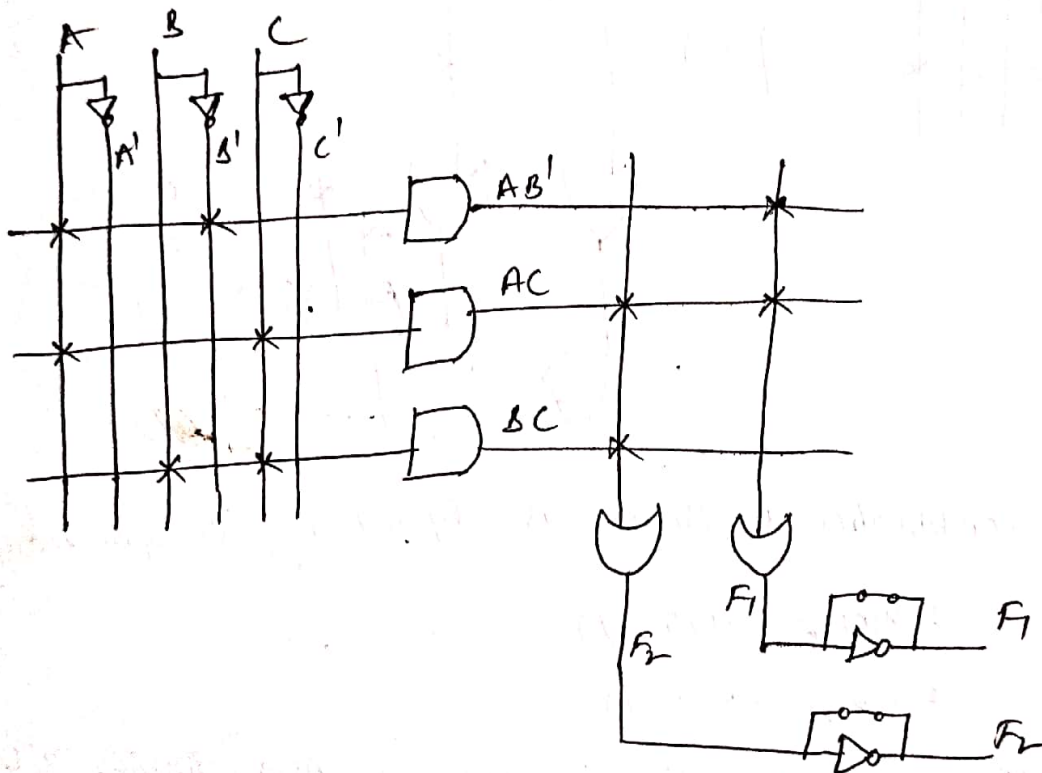 A B C
A' B' C'
AB'
AC
BC
F1 F1
F2
F2